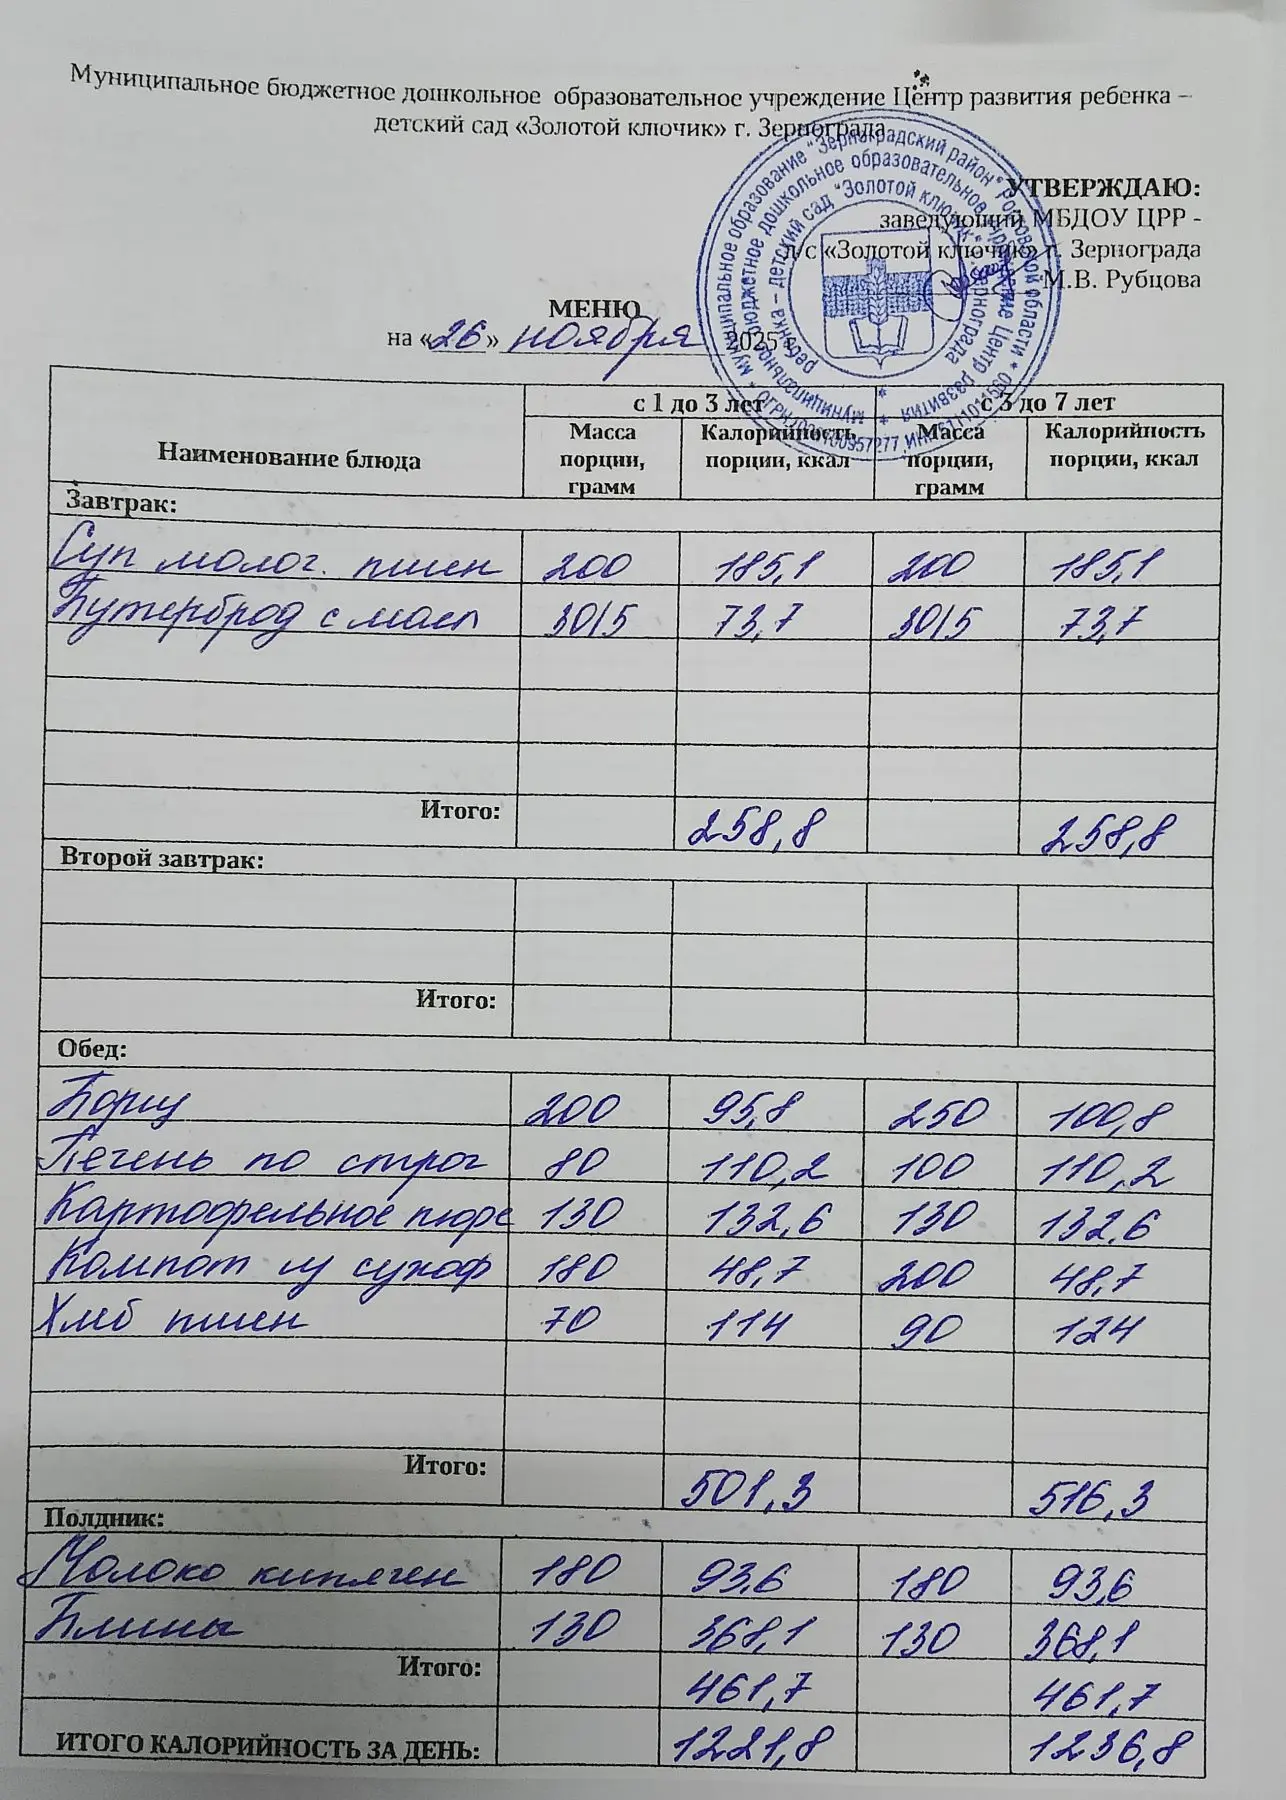 Муниципальное бюджетное дошкольное образовательное учреждение Центр развития ребенка –
детский сад «Золотой ключик» г. Зернограда
УТВЕРЖДАЮ:
заведующий МБДОУ ЦРР -
д/с «Золотой ключик» г. Зернограда
М.В. Рубцова
МЕНЮ
на «26» ноября 2025 г.
Наименование блюда с 1 до 3 лет с 3 до 7 лет
Масса порции, грамм Калорийность порции, ккал Масса порции, грамм Калорийность порции, ккал
Завтрак:
Суп молоч. пшен 200 185,1 200 185,1
Бутерброд с масл 30/5 73,7 30/5 73,7
Итого: 258,8 258,8
Второй завтрак:
Итого:
Обед:
Борщ 200 95,8 250 100,8
Печень по строг 80 110,2 100 110,2
Картофельное пюре 130 132,6 130 132,6
Компот из сухоф 180 48,7 200 48,7
Хлеб пшен 70 114 90 124
Итого: 501,3 516,3
Полдник:
Молоко кипячен 180 93,6 180 93,6
Блины 130 368,1 130 368,1
Итого: 461,7 461,7
ИТОГО КАЛОРИЙНОСТЬ ЗА ДЕНЬ: 1221,8 1236,8
муниципальное образование "Зерноградский район" Ростовской области
муниципальное бюджетное дошкольное образовательное учреждение Центр развития
ребенка – детский сад "Золотой ключик" г. Зернограда